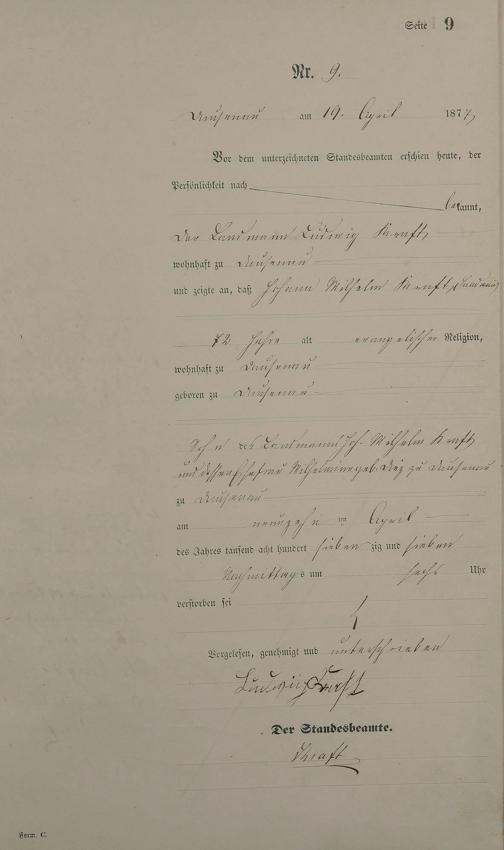 Seite 9
Nr. 9.
Dausenau am 19. April 1877,
Vor dem unterzeichneten Standesbeamten erschien heute, der
Persönlichkeit nach
bekannt,
der Landmann Ludwig Kraft,
wohnhaft zu Dausenau
und zeigte an, daß Johann Wilhelm Kraft,
72 Jahre alt evangelischer Religion,
wohnhaft zu Dausenau
geboren zu Dausenau
Sohn des Landmanns Joh. Wilhelm Kraft
und dessen Ehefrau Wilhelmine geb. zu Dausenau
zu Dausenau
am neunzehn ten April
des Jahres tausend acht hundert siebenzig und sieben
Nachmittags um sechs Uhr
verstorben sei
Vorgelesen, genehmigt und unterschrieben
Ludwig Kraft
Der Standesbeamte.
Kraft
Form. C.